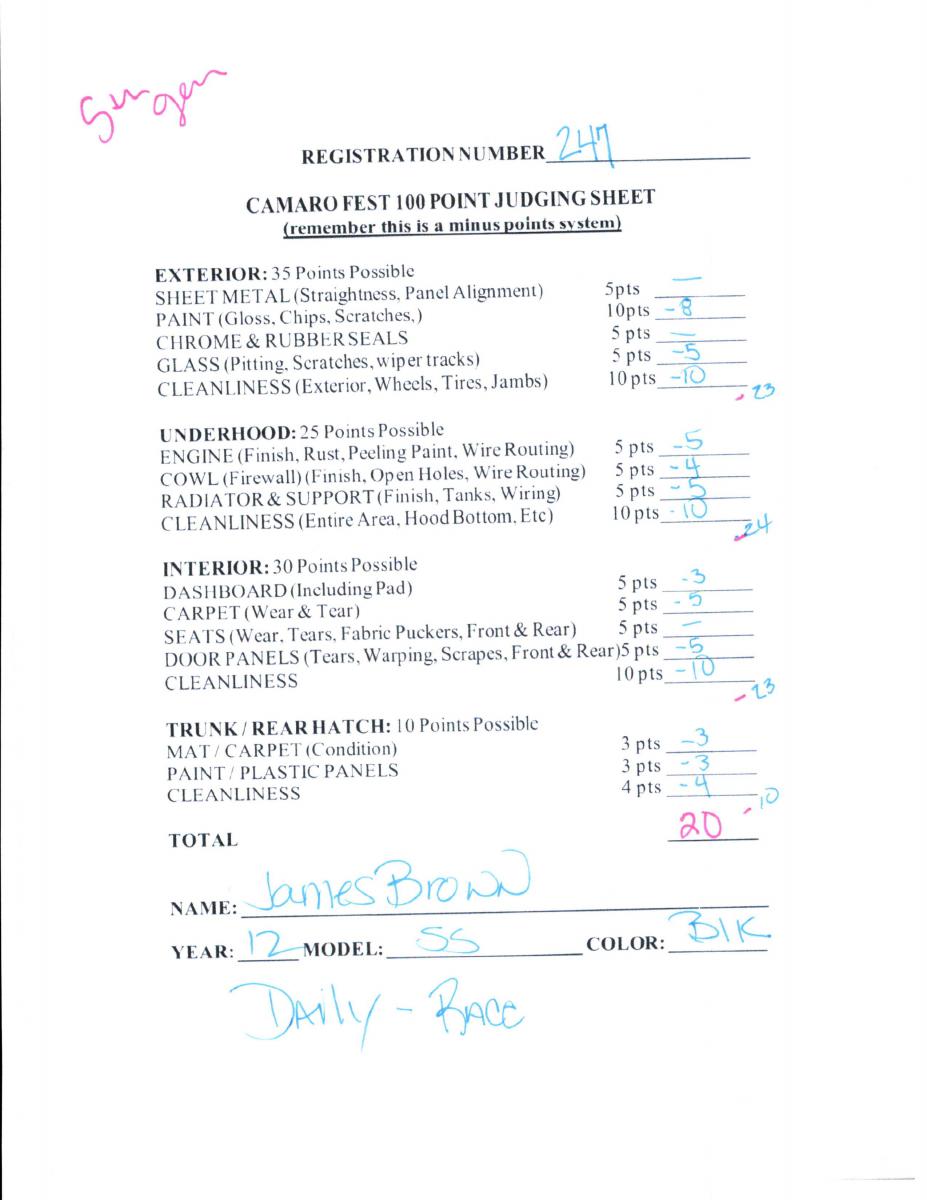 5th gen
REGISTRATION NUMBER 247
CAMARO FEST 100 POINT JUDGING SHEET
(remember this is a minus points system)
EXTERIOR: 35 Points Possible
SHEET METAL (Straightness, Panel Alignment) 5pts —
PAINT (Gloss, Chips, Scratches,) 10pts -8
CHROME & RUBBER SEALS 5 pts —
GLASS (Pitting, Scratches, wiper tracks) 5 pts -5
CLEANLINESS (Exterior, Wheels, Tires, Jambs) 10 pts -10
-23
UNDERHOOD: 25 Points Possible
ENGINE (Finish, Rust, Peeling Paint, Wire Routing) 5 pts -5
COWL (Firewall) (Finish, Open Holes, Wire Routing) 5 pts -4
RADIATOR & SUPPORT (Finish, Tanks, Wiring) 5 pts -5
CLEANLINESS (Entire Area, Hood Bottom, Etc) 10 pts -10
-24
INTERIOR: 30 Points Possible
DASHBOARD (Including Pad) 5 pts -3
CARPET (Wear & Tear) 5 pts -5
SEATS (Wear, Tears, Fabric Puckers, Front & Rear) 5 pts —
DOOR PANELS (Tears, Warping, Scrapes, Front & Rear) 5 pts -5
CLEANLINESS 10 pts -10
-23
TRUNK / REAR HATCH: 10 Points Possible
MAT / CARPET (Condition) 3 pts -3
PAINT / PLASTIC PANELS 3 pts -3
CLEANLINESS 4 pts -4
-10
TOTAL 20
NAME: James Brown
YEAR: 12 MODEL: SS COLOR: Blk
Daily - Race